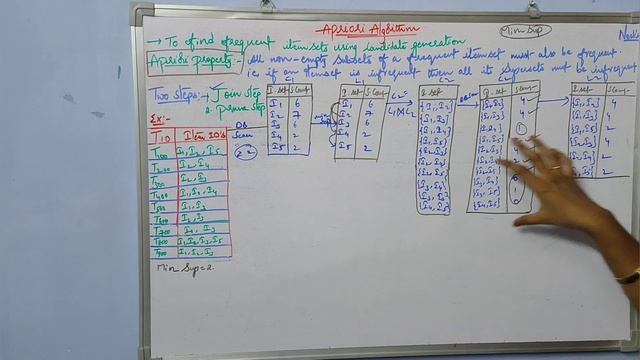 Apriori Algorithm
Min Sup
→ To find frequent itemsets using candidate generation
Apriori property:- All non-empty subsets of a frequent itemset must also be frequent.
i.e if an itemset is infrequent then all its supersets must be infrequent
Two Steps:- 1. Join Step
2. prune step
Ex:-
TID Item ID's
T100 I1, I2, I5
T200 I2, I4
T300 I2, I3
T400 I1, I2, I4
T500 I1, I3
T600 I2, I3
T700 I1, I3
T800 I1, I2, I3, I5
T900 I1, I2, I3
Min Sup=2.
DB
Scan
C1
I.set S.Coup
I1 6
I2 7
I3 6
I4 2
I5 2
L1
I.set S.Coup
I1 6
I2 7
I3 6
I4 2
I5 2
C2
L1⋈L1
I.set
{I1, I2}
{I1, I3}
{I1, I4}
{I1, I5}
{I2, I3}
{I2, I4}
{I2, I5}
{I3, I4}
{I3, I5}
{I4, I5}
I.set S.Coup
{I1, I2} 4
{I1, I3} 4
I.set S.Coup
{I1, I2} 4
{I1, I3} 4